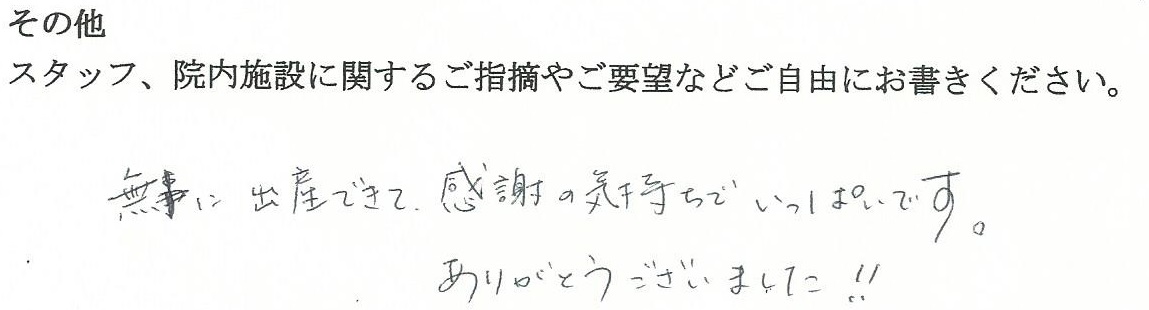 その他
スタッフ、院内施設に関するご指摘やご要望などご自由にお書きください。
無事に出産できて、感謝の気持ちでいっぱいです。
ありがとうございました!!